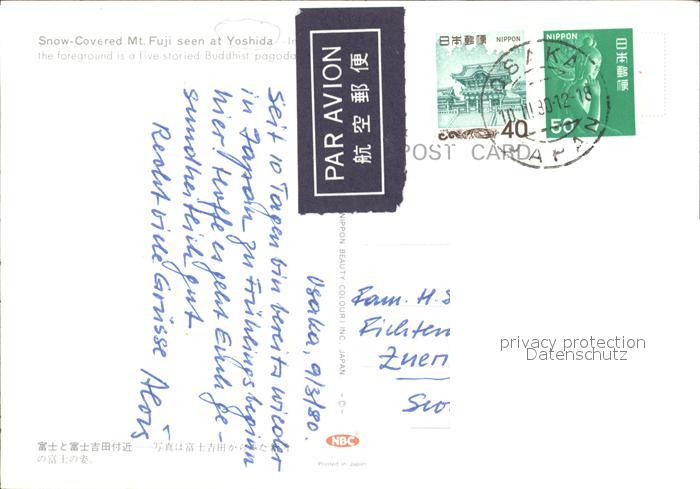 Snow-Covered Mt. Fuji seen at Yoshida
the foreground is a five-storied Buddhist pagoda
PAR AVION
航空郵便
日本郵便 NIPPON
40
NIPPON
日本郵便
50
OSAKA
10.III.80.12-18
JAPAN
POST CARD
Osaka, 9/3/80.
Seit 10 Tagen bin bereits wieder
in Japan zu Frühlingsbeginn
hier! Hoffe es geht Euch ge-
sundheitlich gut.
Recht viele Grüsse Alois
NIPPON BEAUTY COLOUR INC. JAPAN
Fam. H. S
Fichten
Zuer
privacy protection
Datenschutz
NBC
Printed in Japan
富士と富士吉田付近 写真は富士吉田から
の富士の姿。